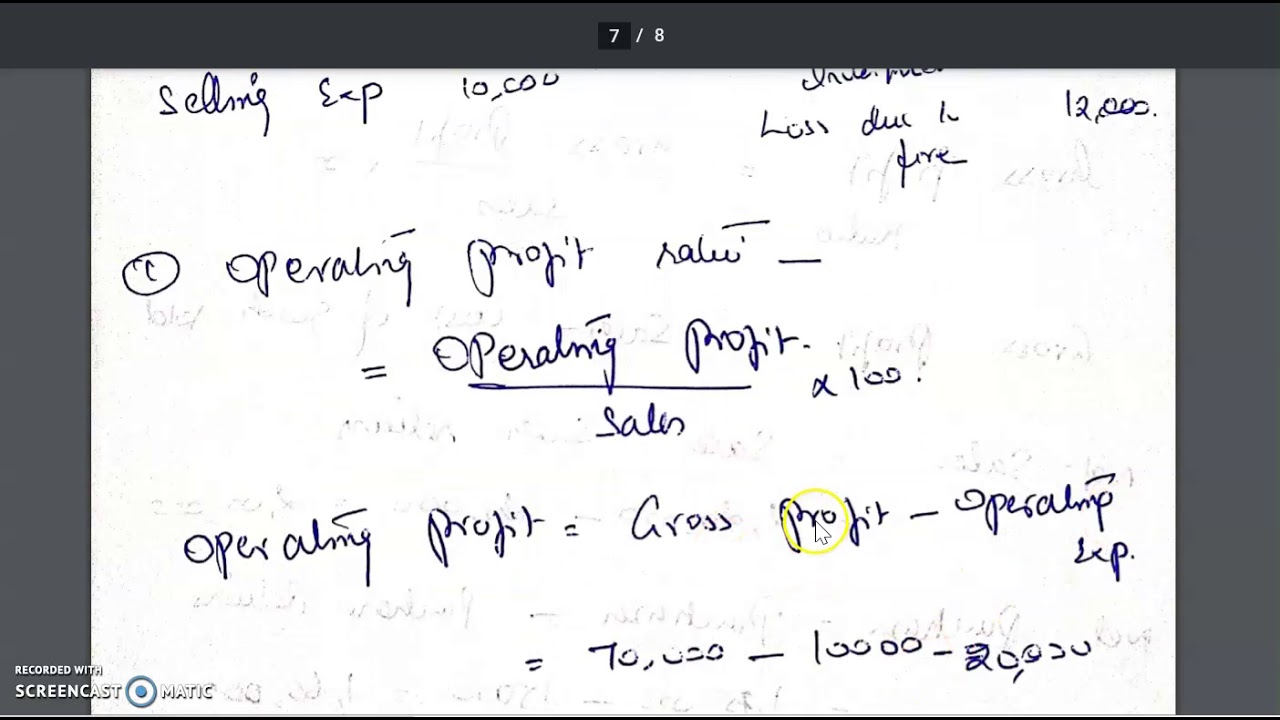 7 / 8
Selling Exp 10,000
Loss due to 12,000.
fire
① Operating profit ratio —
= Operating profit.
x 100.
Sales
Operating profit = Gross profit — Operating
Exp.
= 70,000 — 10000 - 20,000
RECORDED WITH
SCREENCAST MATIC